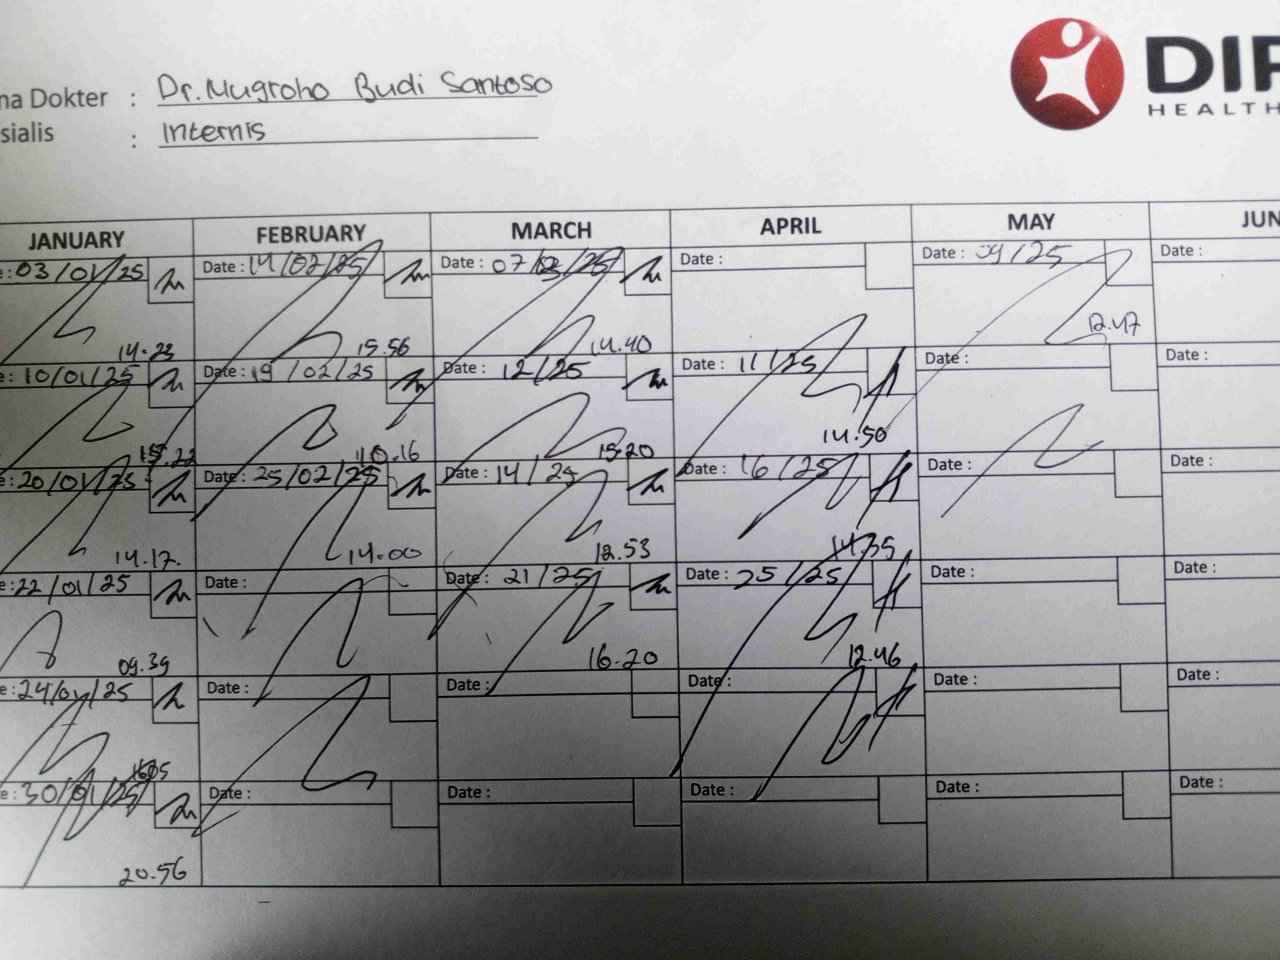 na Dokter : Dr. Nugroho Budi Santoso
sialis : Internis
DIP
HEALTH
JANUARY FEBRUARY MARCH APRIL MAY JUN
e: 03/01/25 Date: 14/02/25 Date: 07/03/25 Date: Date: 09/25 Date:
14.23 15.56 14.40 12.47
e: 10/01/25 Date: 19/02/25 Date: 12/25 11/25 Date: Date:
15.22 10.16 15.20 14.50
e: 20/01/25 Date: 25/02/25 Date: 14/25 Date: 16/25 Date: Date:
14.17 14.00 12.53 14.35
e: 22/01/25 Date: Date: 21/25 Date: 25/25 Date: Date:
09.39 16.20 12.46
e: 24/01/25 Date: Date: Date: Date: Date:
e: 30/01/25 Date: Date: Date: Date: Date:
20.56